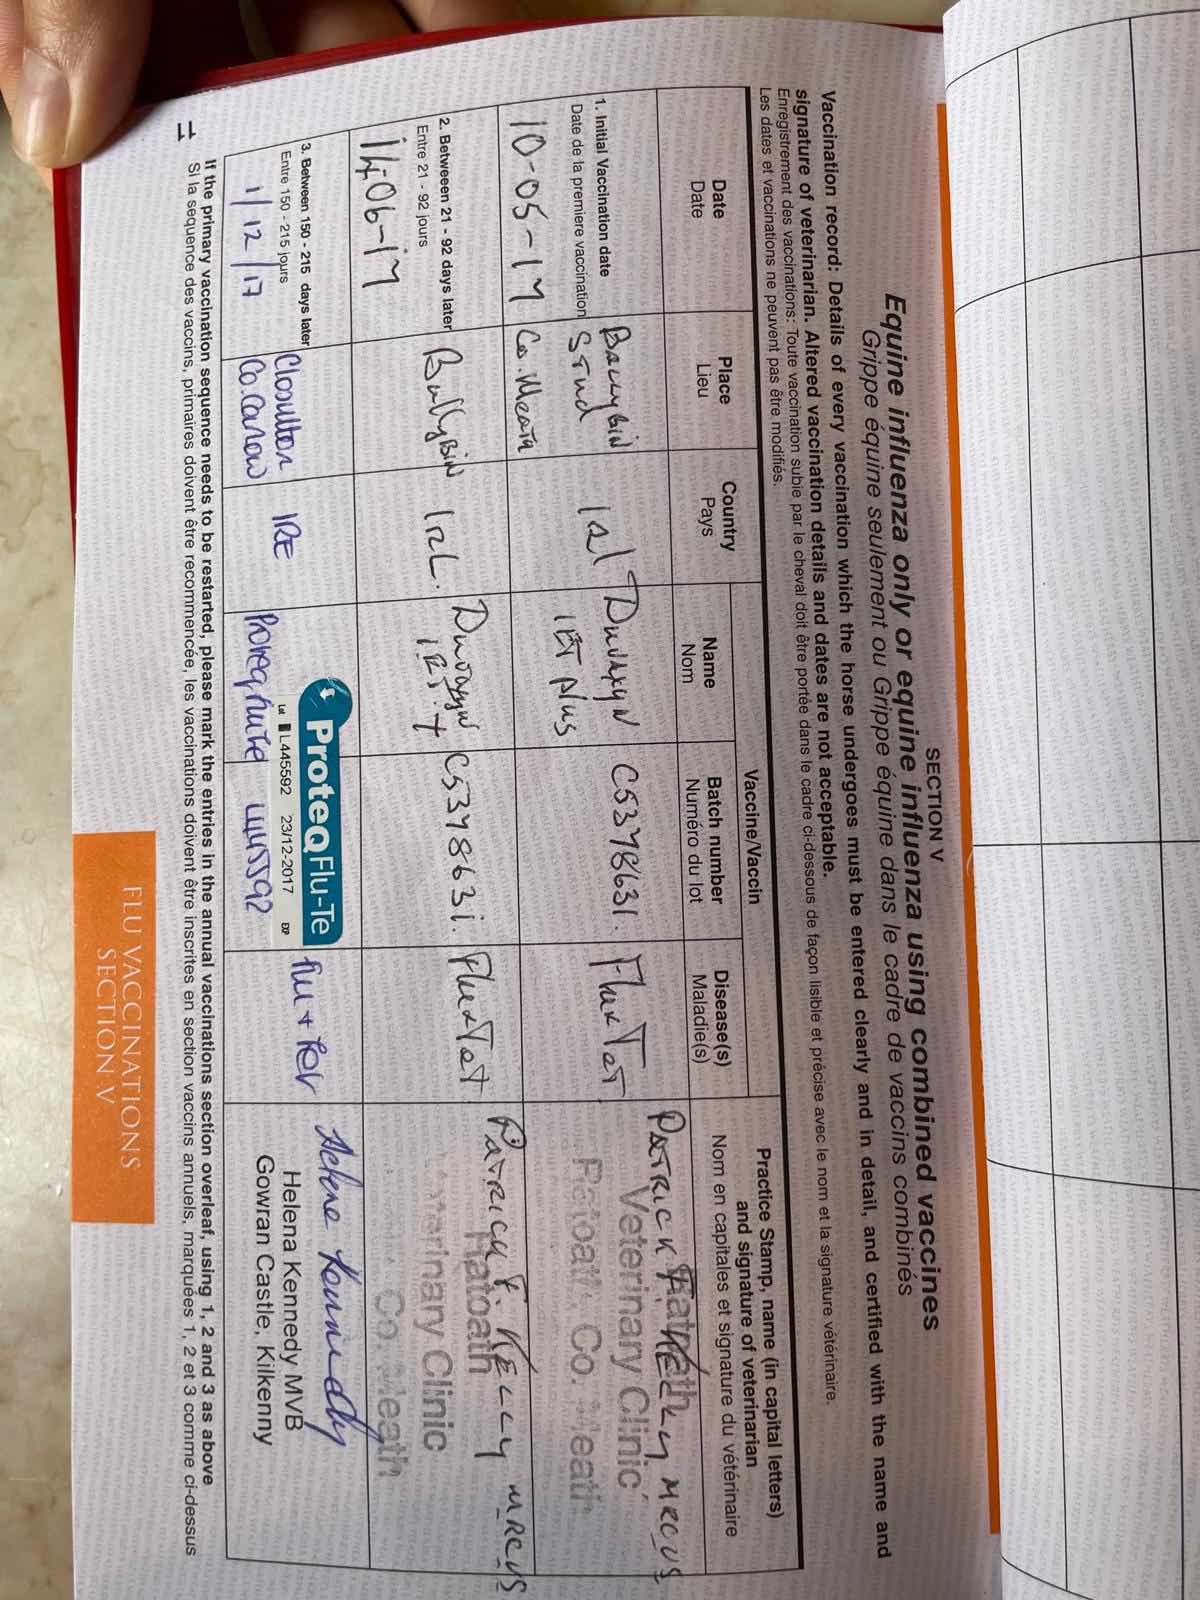 SECTION V
Equine influenza only or equine influenza using combined vaccines
Grippe équine seulement ou Grippe équine dans le cadre de vaccins combinés
Vaccination record: Details of every vaccination which the horse undergoes must be entered clearly and in detail, and certified with the name and
signature of veterinarian. Altered vaccination details and dates are not acceptable.
Enregistrement des vaccinations: Toute vaccination subie par le cheval doit être portée dans le cadre ci-dessous de façon lisible et précise avec le nom et la signature vétérinaire.
Les dates et vaccinations ne peuvent pas être modifiés.
Date
Date
Place
Lieu
Country
Pays
Vaccine/Vaccin
Name
Nom
Batch number
Numéro du lot
Disease(s)
Maladie(s)
Practice Stamp, name (in capital letters)
and signature of veterinarian
Nom en capitales et signature du vétérinaire
1. Initial Vaccination date
Date de la premiere vaccination
10-05-17
Ballybin
Stud
Co. Meath
Irl
Duvaxyn
IET Plus
C5378631.
Flu & Tet
PATRICK F. KELLY MRCVS
Ratoath
Veterinary Clinic
Ratoath Co. Meath
2. Betweeen 21 - 92 days later
Entre 21 - 92 jours
14-06-17
Ballybin
IRL.
Duvaxyn
C537863i.
Flu & Tet
PATRICK F. KELLY MRCVS
Ratoath
Veterinary Clinic
Co. Meath
3. Between 150 - 215 days later
Entre 150 - 215 jours
1/12/17
Closutton
Co. Carlow
IRE
ProteqFlu-Te
Lot L445592 23/12-2017 EXP
Proteqflu Te
L445592
Flu + Tet
Helena Kennedy
Helena Kennedy MVB
Gowran Castle, Kilkenny
If the primary vaccination sequence needs to be restarted, please mark the entries in the annual vaccinations section overleaf, using 1, 2 and 3 as above
Si la sequence des vaccins, primaires doivent être recommencée, les vaccinations doivent être inscrites en section vaccins annuels, marquées 1, 2 et 3 comme ci-dessus
11
FLU VACCINATIONS
SECTION V